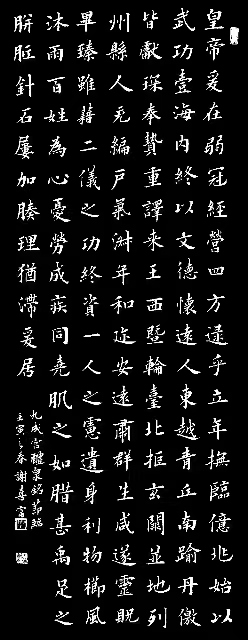 皇帝爰在弱冠經營四方逮乎立年撫臨億兆始以
武功壹海内終以文德懷遠人東越青丘南踰丹徼
皆獻琛奉贄重譯來王西暨輪臺北拒玄闕並地列
州縣人充編戶氣淑年和迩安遠肅群生咸遂靈貺
畢臻雖藉二儀之功終資一人之慮遺身利物櫛風
沐雨百姓為心憂勞成疾同堯肌之如腊甚禹足之
胼胝針石屢加腠理猶滯爰居
九成宮醴泉銘節
壬寅之春謝